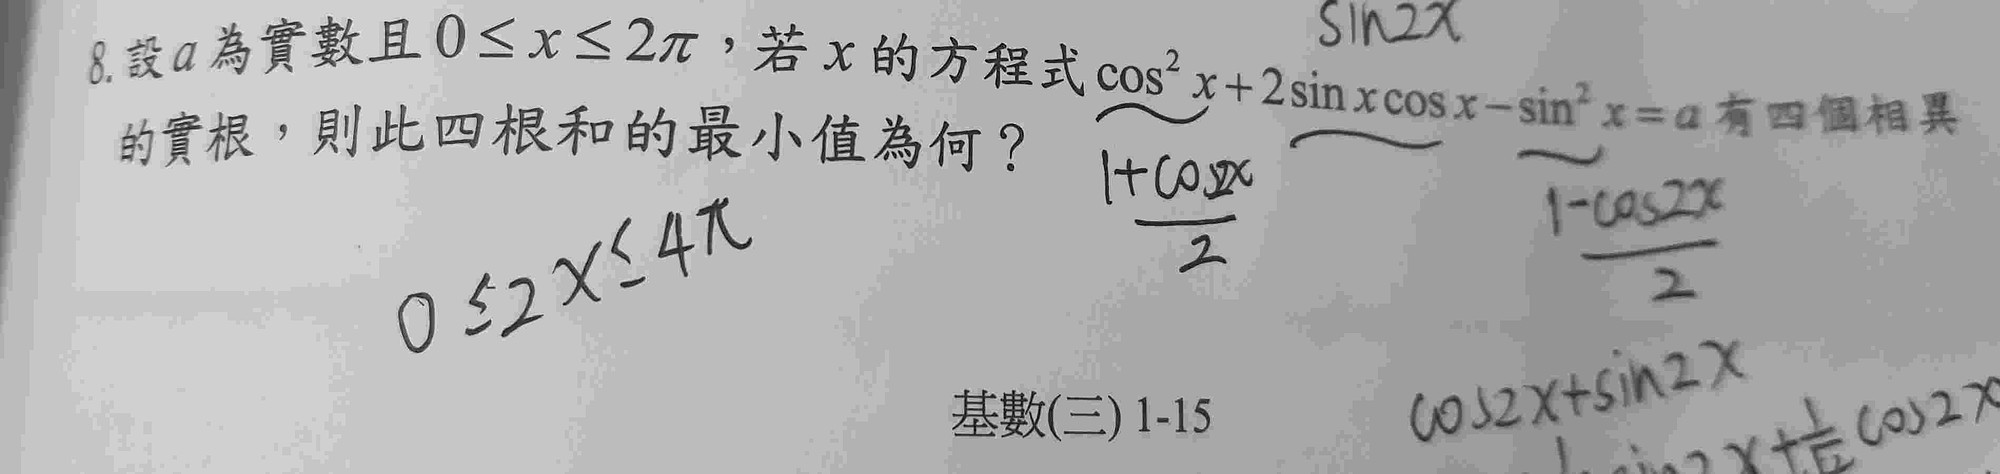 sin2x
8. 設 a 為實數且 0 ≤ x ≤ 2π，若 x 的方程式 cos² x + 2 sin x cos x − sin² x = a 有四個相異
的實根，則此四根和的最小值為何？
1+cos2x
2
1-cos2x
2
0 ≤ 2x ≤ 4π
基數(三) 1-15
cos2x+sin2x
sin2x + cos2x